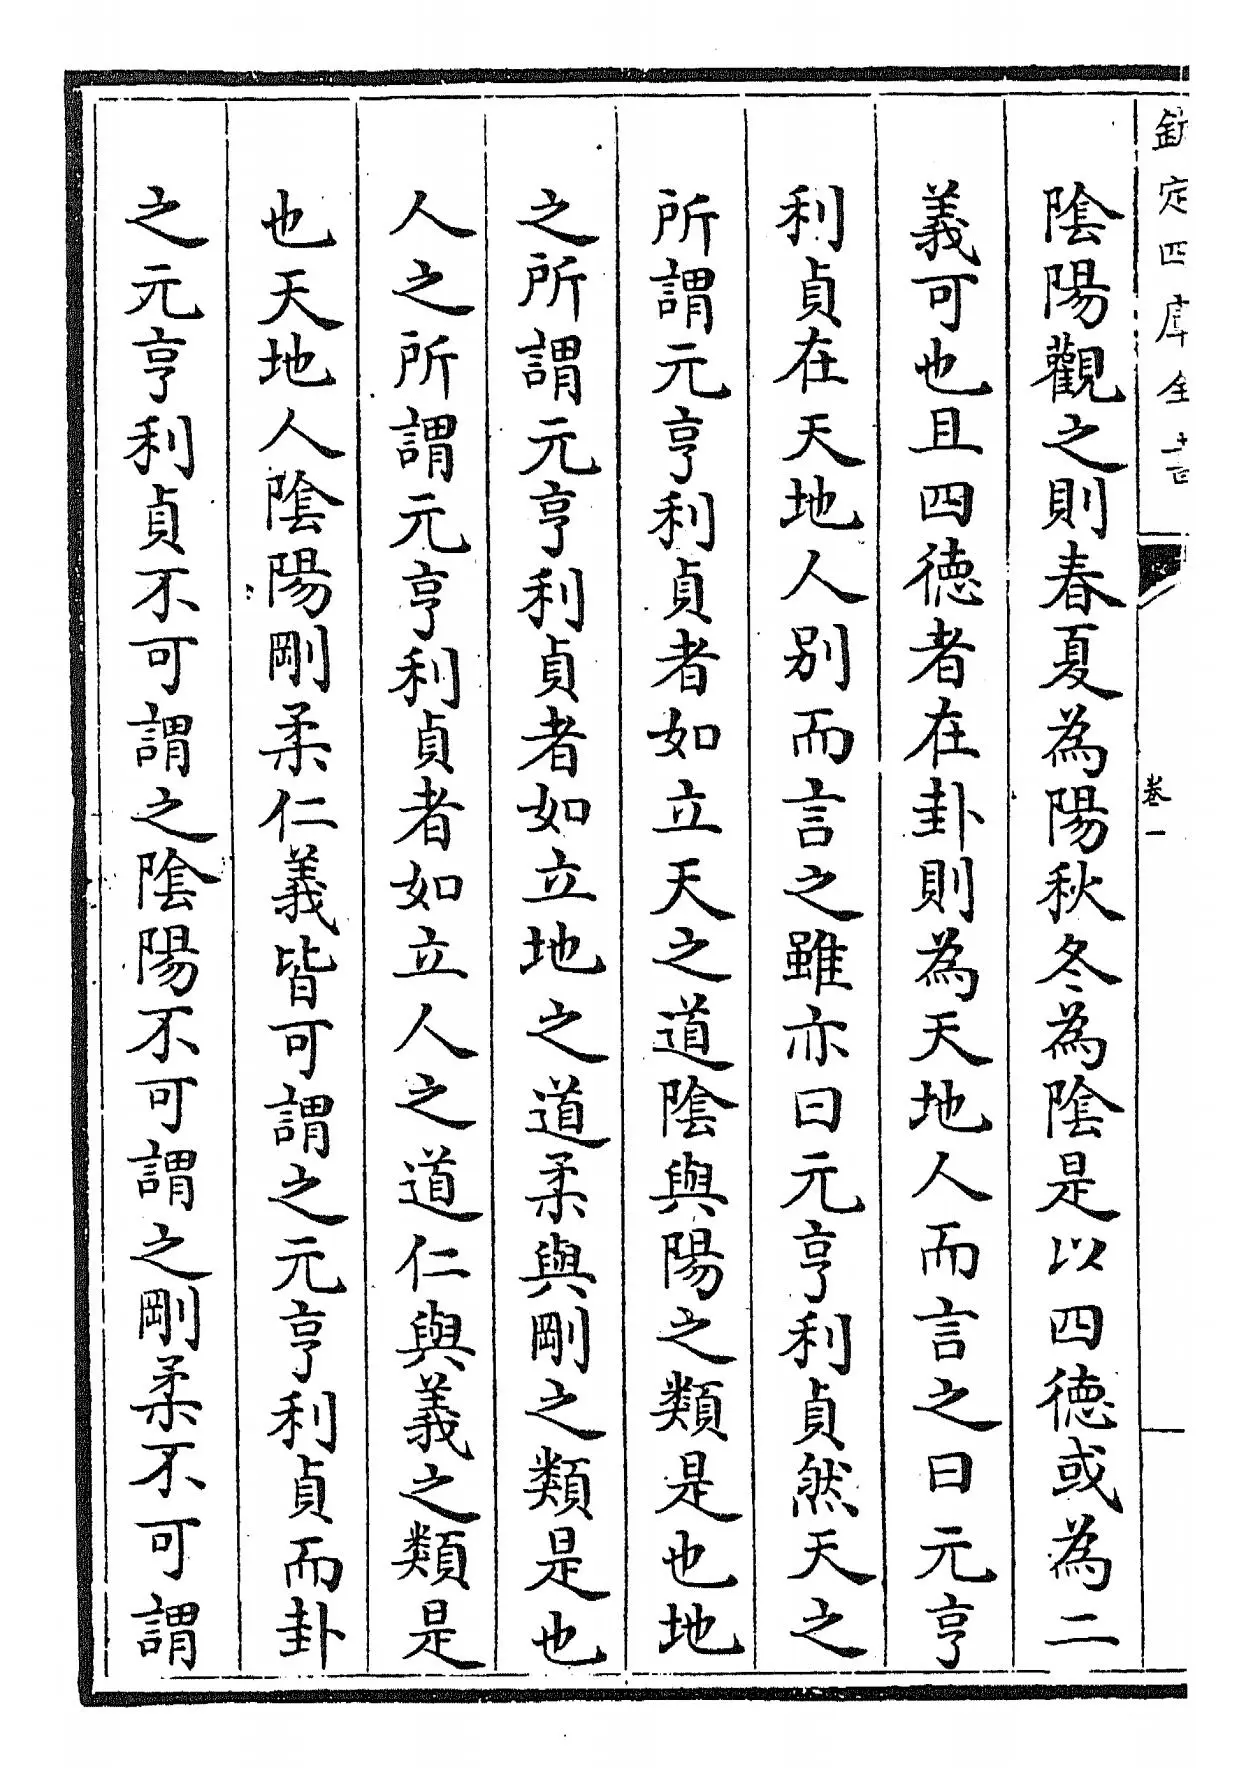 欽定四庫全書
卷一
陰陽觀之則春夏為陽秋冬為陰是以四德或為二
義可也且四德者在卦則為天地人而言之曰元亨
利貞在天地人別而言之雖亦曰元亨利貞然天之
所謂元亨利貞者如立天之道陰與陽之類是也地
之所謂元亨利貞者如立地之道柔與剛之類是也
人之所謂元亨利貞者如立人之道仁與義之類是
也天地人陰陽剛柔仁義皆可謂之元亨利貞而卦
之元亨利貞不可謂之陰陽不可謂之剛柔不可謂